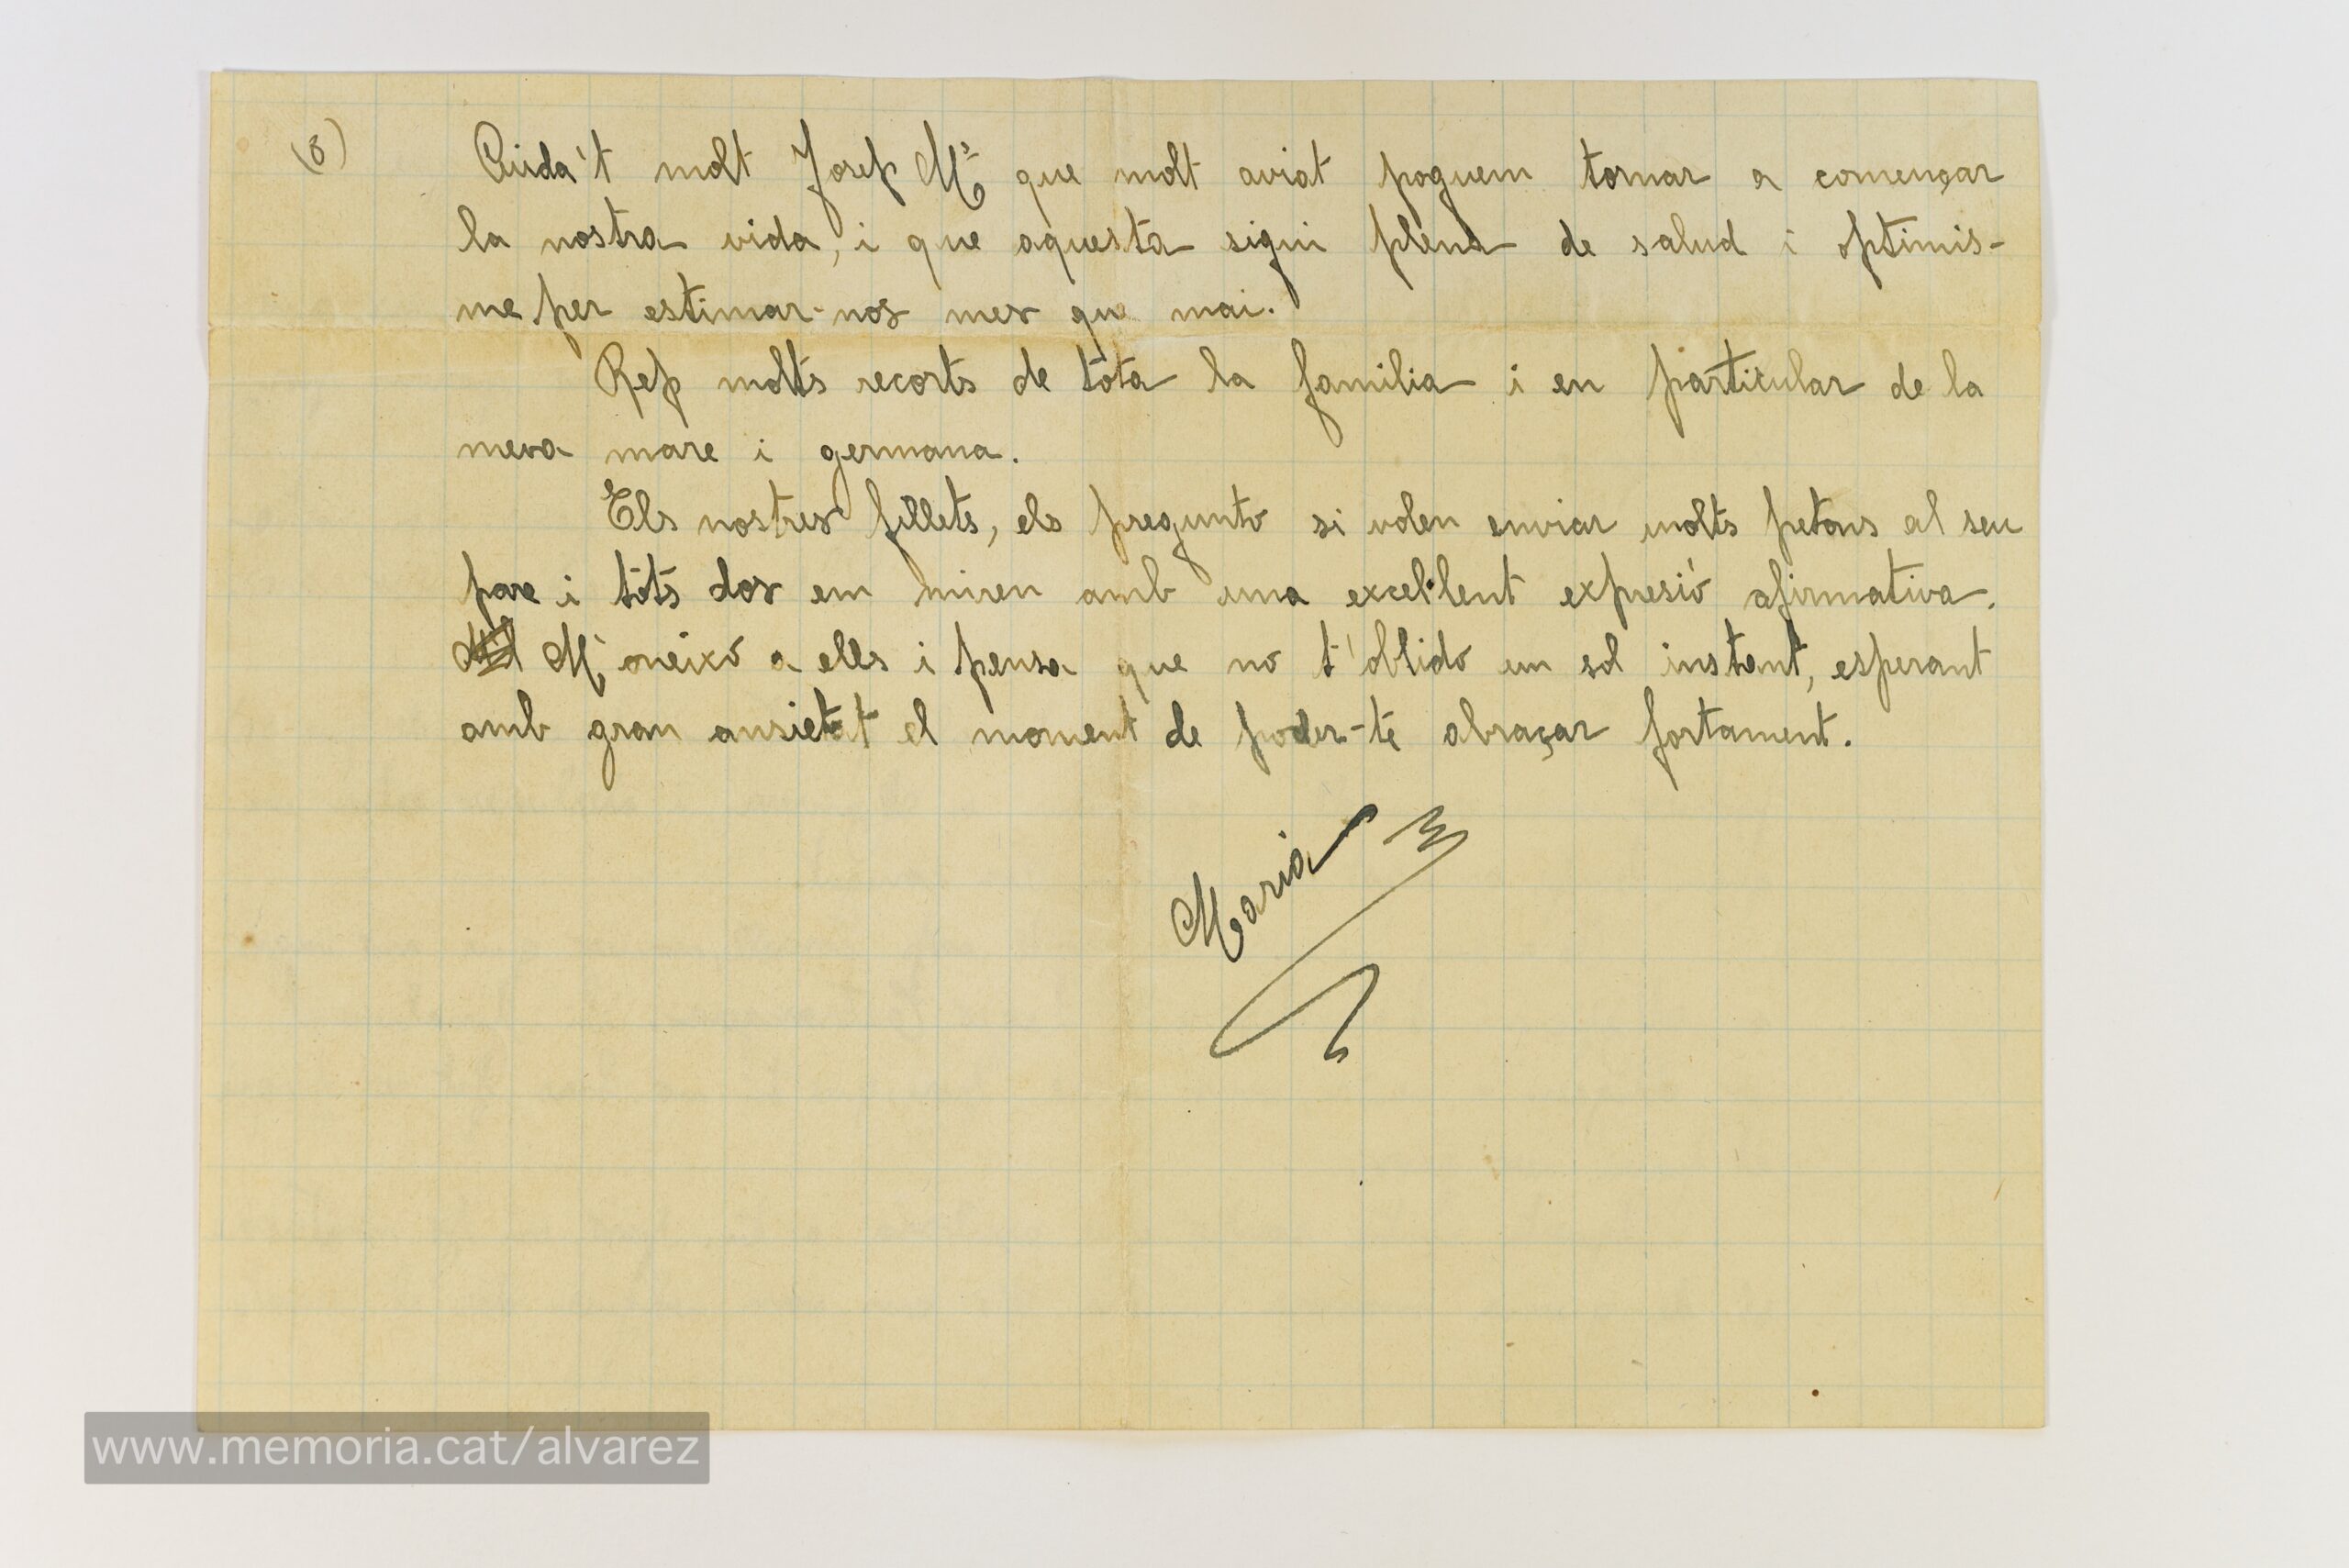 (6)
Cuida't molt Josep Mª que molt aviat poguem tornar a començar
la nostra vida, i que aquesta sigui plena de salud i optimis-
me per estimar-nos mes que mai.
Rep molts recorts de tota la familia i en particular de la
meva mare i germana.
Els nostres fillets, els pregunto si volen enviar molts petons al seu
pare i tots dos em miren amb una excel·lent expresió afirmativa.
M'uneixo a ells i pensa que no t'oblido un sol instant, esperant
amb gran ansietat el moment de poder-te abraçar fortament.
Maria
www.memoria.cat/alvarez